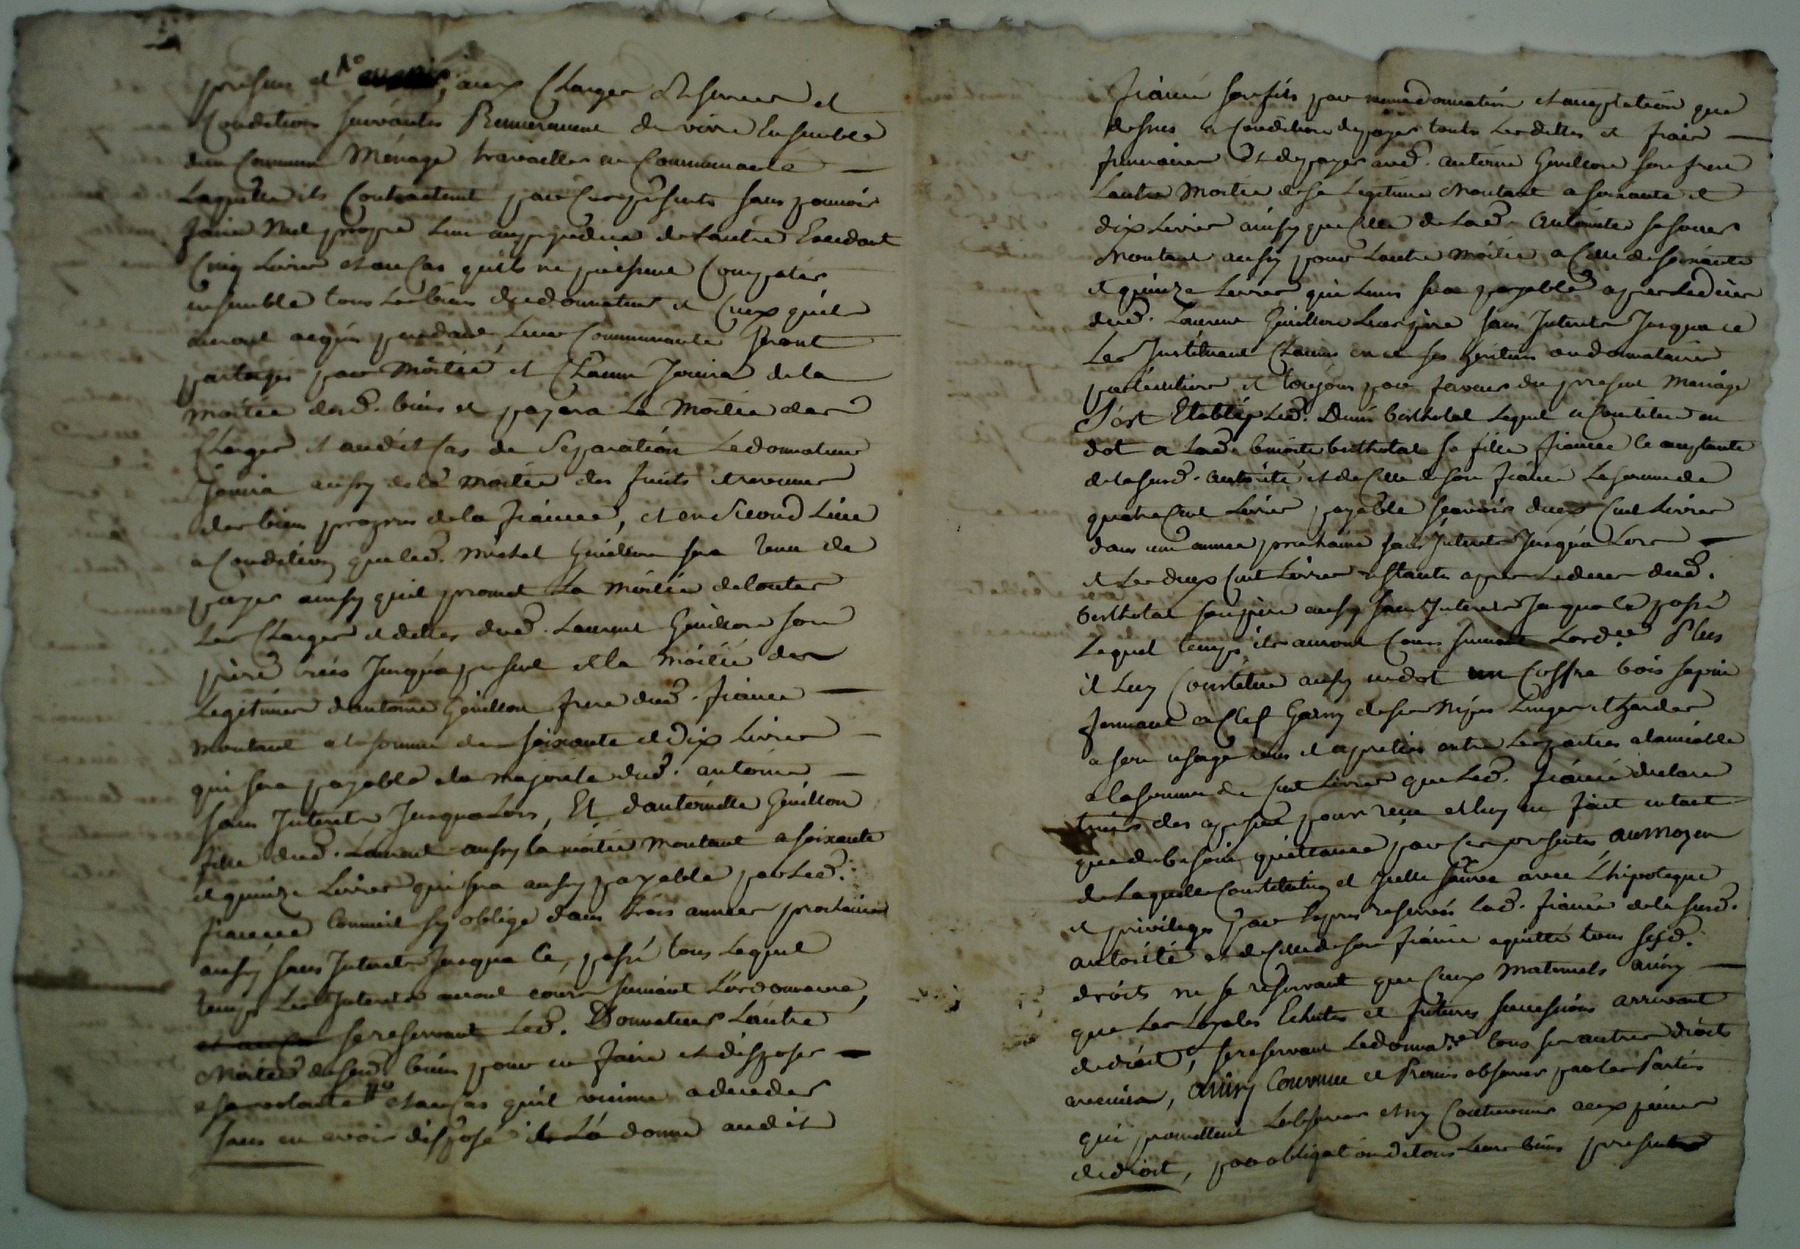 presens et aux Charges Reserves et
Conditions suivantes Premierement de vivre Ensemble
dun Commun Ménage travailler en Communauté
Laquelle ils Contractent par Ces presents sans pouvoir
faire Nul propre Lun au prejudice de Lautre Excedant
Cinq Livres et au Cas quils ne puissent Compatir
ensemble tous Les biens dud donnateur et Ceux quils
auront acquis pendant Leur Communauté seront
partagés par Moitié et Chacun Jouira de la
moitié desd. biens et payera La Moitié des
Charges et audit Cas de Separation Le donnateur
Jouira aussy de la moitié des fruits et revenus
des biens propres de la fiancée, et en Second Lieu
a Condition que led. Michel Guillon sera tenu de
payer ainsy quil promet La Moitié de toutes
Les Charges et dettes dud. Laurent Guillon son
père crées Jusqua present et la moitié des
Legitimes dantoine Guillon frere dud. fiancé
montant a la somme de soixante et Dix Livres
qui sera payable a la majorité dud. antoine
sans Interets Jusqualors, Et dantoinette Guillon
fille dud. Laurent aussy la moitié Montant a soixante
et quinze Livres qui sera aussy payable par Led.
fiancé Comme il sy oblige dans trois années prochaines
aussy sans Interets Jusqua Ce, passé tous Lequel
temps Les Interets auront cours suivant L'ordonnance,
se reservant Led. Donnateur Lautre
Moitié de sesd. biens pour en faire et disposer
a sa volonté et au Cas quil vienne a deceder
sans en avoir disposé il La donne audit
fiancé son fils par meme donnation et acceptation que
dessus a Condition de payer touts Les dettes et frais
funeraires Et de payer aud. antoine Guillon son frere
Lautre Moitié de sa Legitime Montant a soixante et
dix Livres ainsy que Celle de Lad. Antoinette sa soeur
Montant aussy pour Lautre Moitié a Celle de soixante
et quinze Livres qui Leurs sera payable apres Le deces
dud. Laurent Guillon Leur père sans Interets Jusqua ce
Les Instituant Chacun en ce ses heritiers ou donnataires
particuliers et toujours par faveur du present Mariage
S'est Etably Led. Denis bertholat Lequel a Constitué en
dot a Lad. benoite bertholat sa fille fiancée Ce acceptante
de la susd. autorité et de Celle de son fiancé La somme de
quatre Cent Livres payable scavoir deux Cent Livres
dans une année prochaine sans Interets Jusqua Lors
et Les deux Cent Livres restants apres Le deces dud.
bertholat son père aussy sans Interets Jusqua Ce passé
Lequel temps ils auront Cours suivant Lord.ce Plus
il Luy Constitue aussy en dot un Coffre bois sapin
fermant a Clef Garny de ses Nipes Linges et hardes
a son usage vus et apretiés entre Les parties a lamiable
a la somme de Cent Livres que Led. fiancé declare
tenir des a present pour reçue et luy en fait entant
que de besoin quittance par Ces presentes au Moyen
de Laquelle Constitution et Icelle sauve avec L'hipoteque
et privileges par Expres reservés Lad. fiancée de la susd.
autorité et de Celle de son fiancé aquitte tous sesd.
droits ne se reservant que Ceux Maternels ainsy
que Les Loyales Echutes et futures successions arrivant
de droit, se reservant Le donna.re tous ses autres droits
a venir, ainsy Convenu et Promis observer par les Parties
qui promettent Lobserver et ny Contrevenir aux peines
de droit, par obligation de tous Leurs biens presents